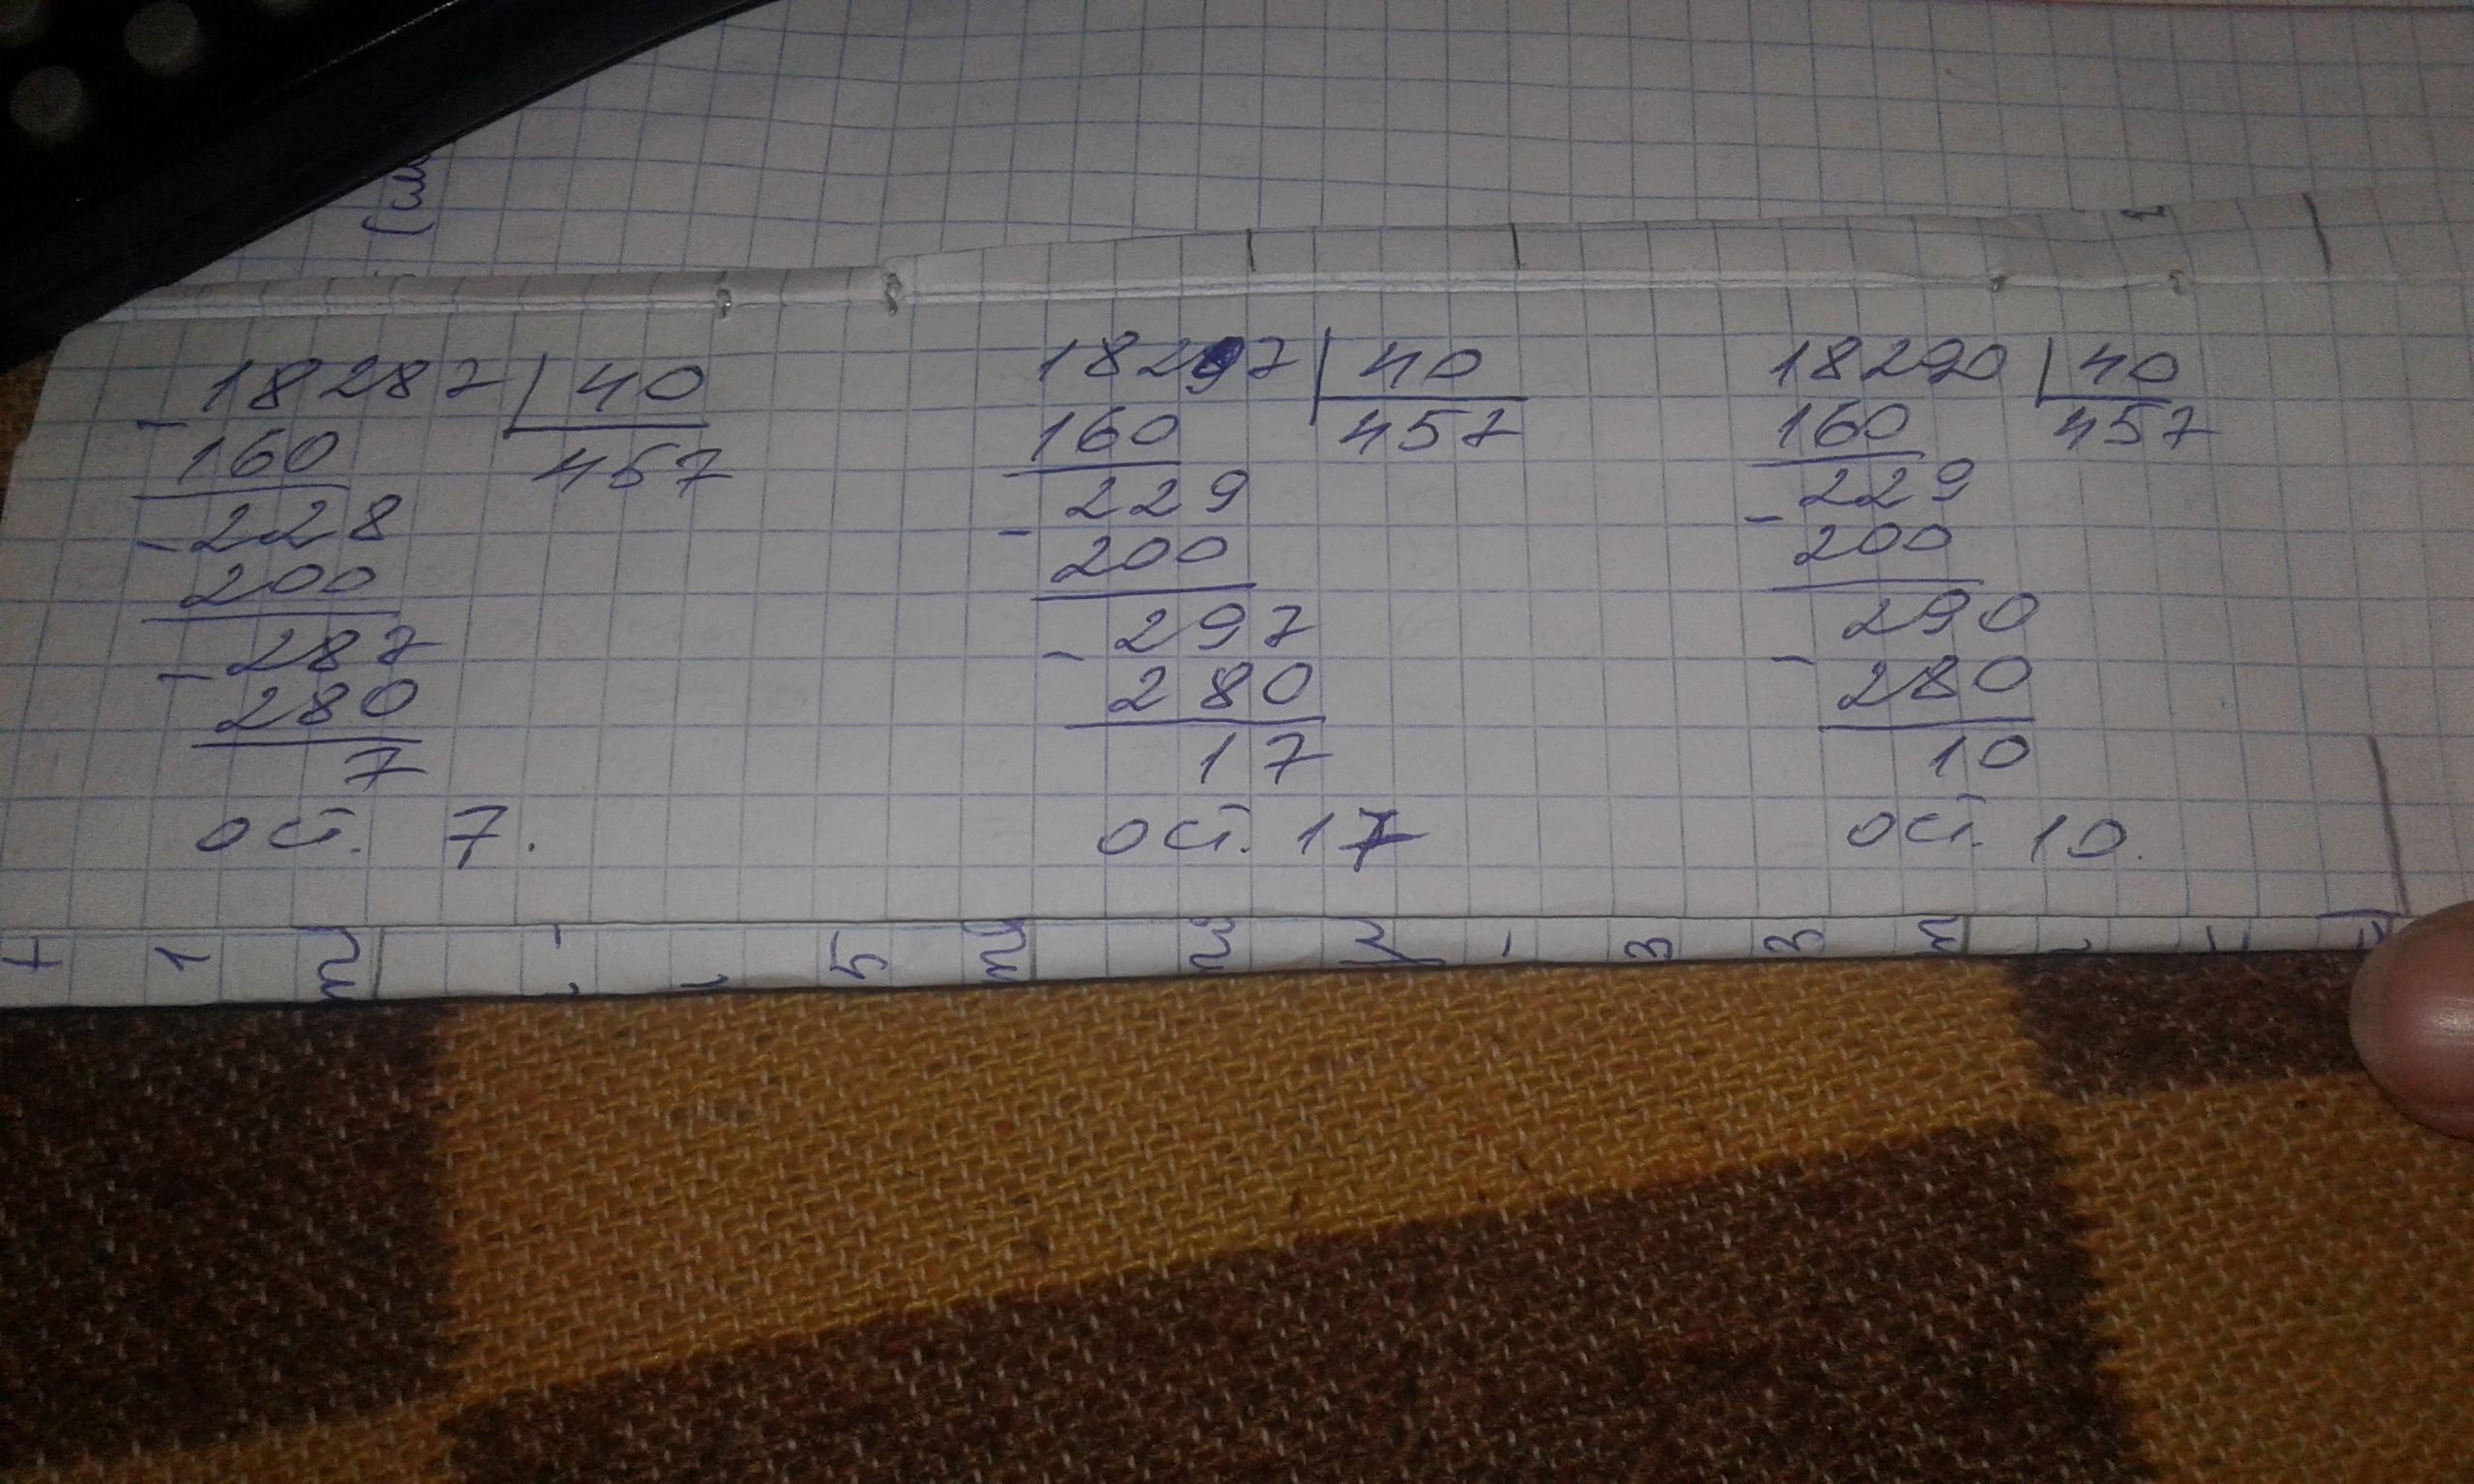 (см
18287 | 40
- 160
457
- 228
200
- 287
280
7
ост. 7.
18297 | 40
160
457
229
- 200
297
- 280
17
ост. 17
18290 | 40
160
457
229
- 200
290
- 280
10
ост. 10.
1
5
3
3